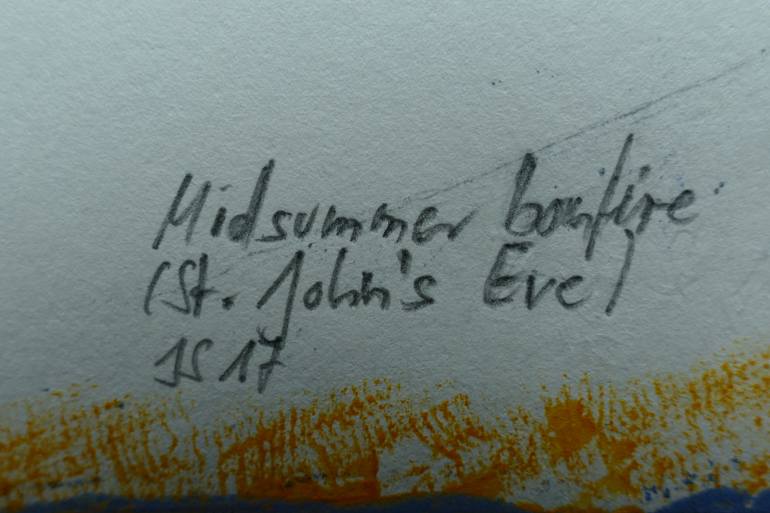 Midsummer bonfire
(St. John's Eve)
JS 17